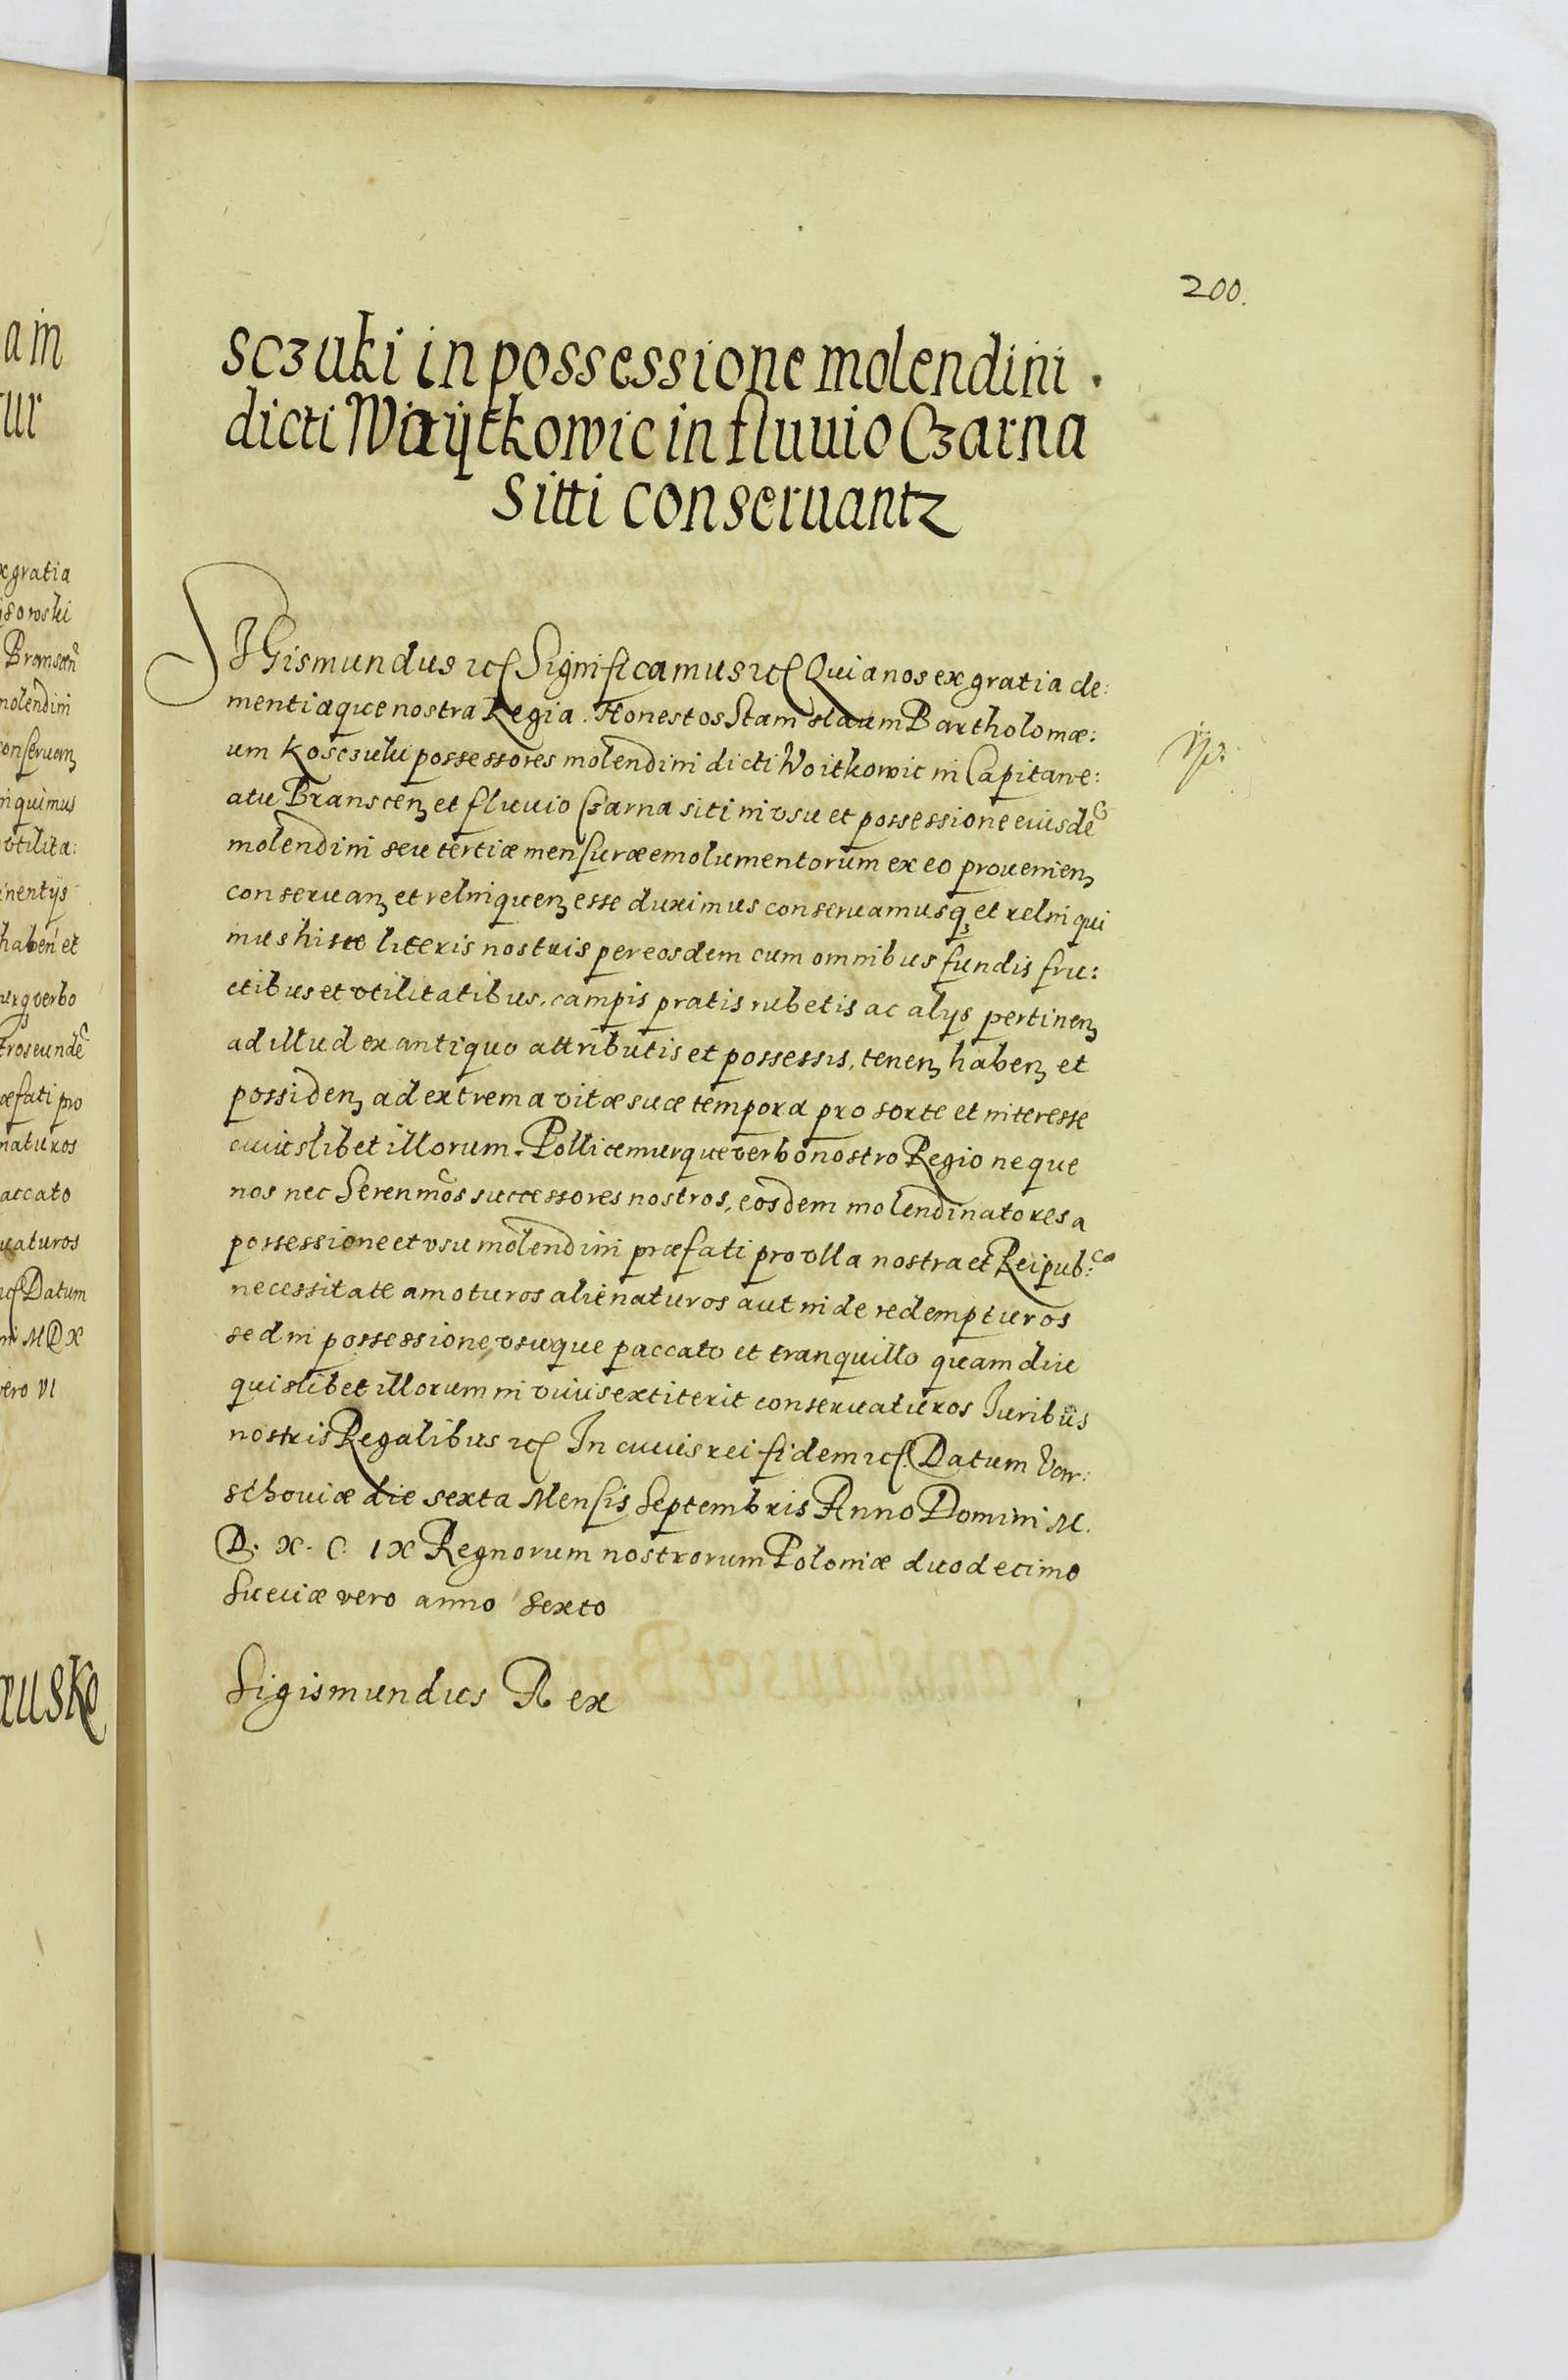 200.
sczuki in possessione molendini
dicti Woÿtkowic in fluuio Czarna
sitti conseruantz
SIGismundus etc Significamus etc Quia nos ex gratia cle:
mentiaque nostra Regia. Honestos Stanislaum Bartholomæ:
um Kosczuki possessores molendini dicti Woitkowic in Capitane:
atu Branscenz et fluuio Czarna siti in vsu et possessione eiusdē
molendini seu tertiæ mensuræ emolumentorum ex eo prouenienz
conseruanz et relinquenz esse duximus conseruamusqz et relinqui
mus hisce literis nostris per eosdem cum omnibus fundis fru:
ctibus et vtilitatibus, campis pratis rubetis ac alÿs pertinenz
ad illud ex antiquo attributis et possessis, tenenz habenz et
possidenz ad extrema vitæ suæ tempora pro sorte et interesse
cuiuslibet illorum. Pollicemurque verbo nostro Regio neque
nos nec Serenm̃os successores nostros, eosdem molendinatores a
possessione et vsu molendini præfati pro vlla nostra et Reipub:cæ
necessitate amoturos alienaturos aut inde redempturos
sed in possessione, vsuque paccato et tranquillo quam diu
quislibet illorum in viuis extiterit conseruaturos Iuribus
nostris Regalibus etc In cuius rei fidem etc. Datum Var:
schouiæ die sexta Mensis Septembris Anno Domini M.
D. X. C. IX Regnorum nostrorum Poloniæ duodecimo
Sueciæ vero anno sexto
Sigismundus Rex